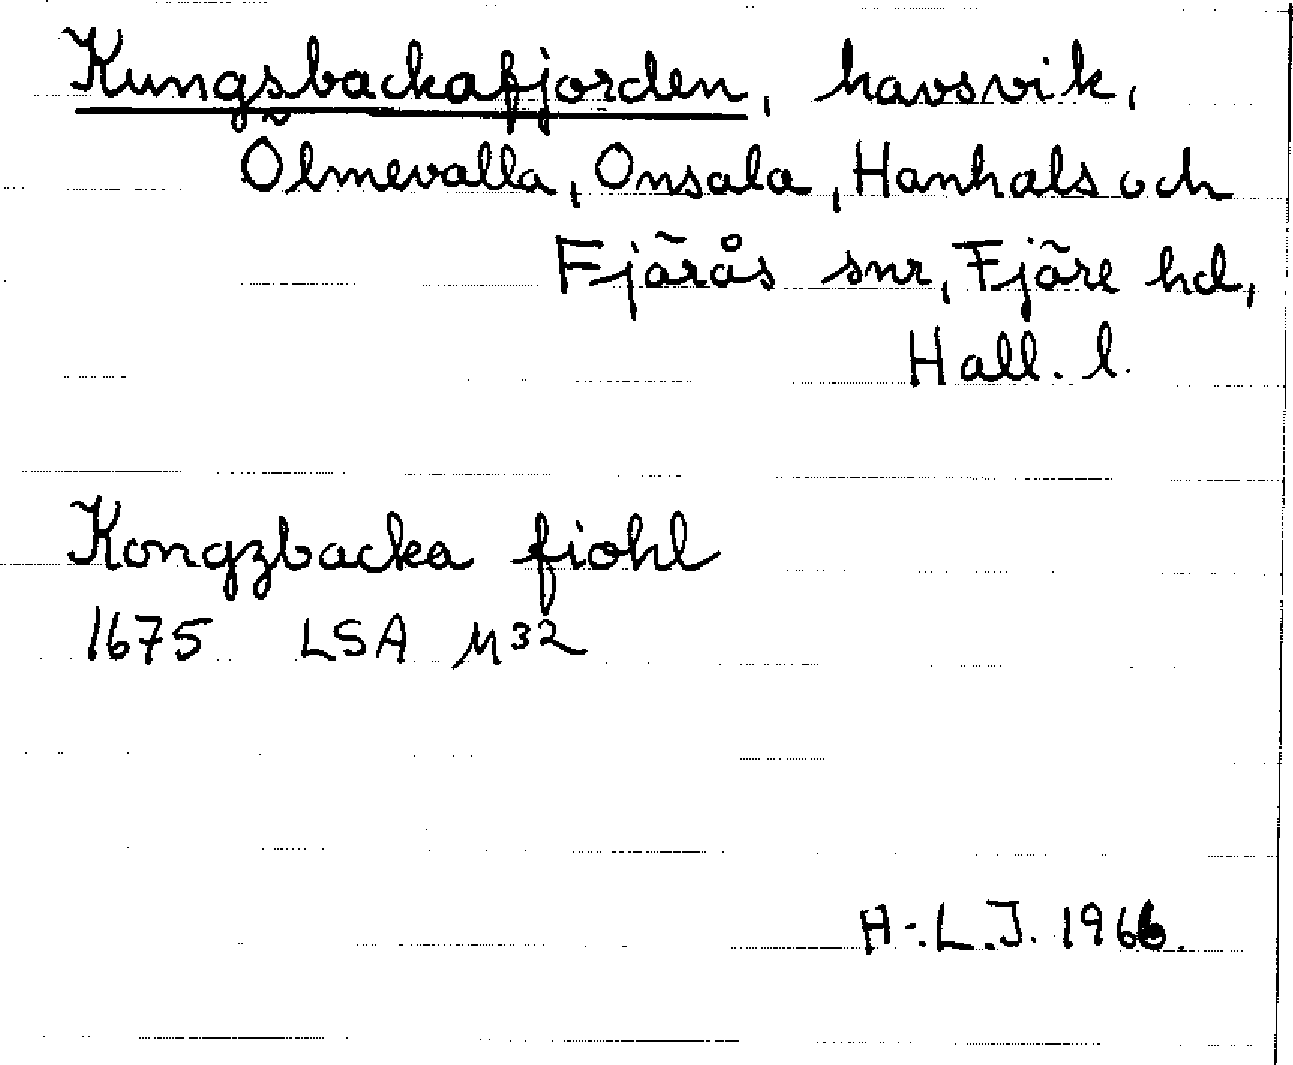 Kungsbackafjorden, havsvik,
Ölmevalla, Onsala, Hanhals och
Fjärås snr, Fjäre hd,
Hall. l.
Kongzbacka fiohl
1675 LSA M32
H-.L.J. 1966.